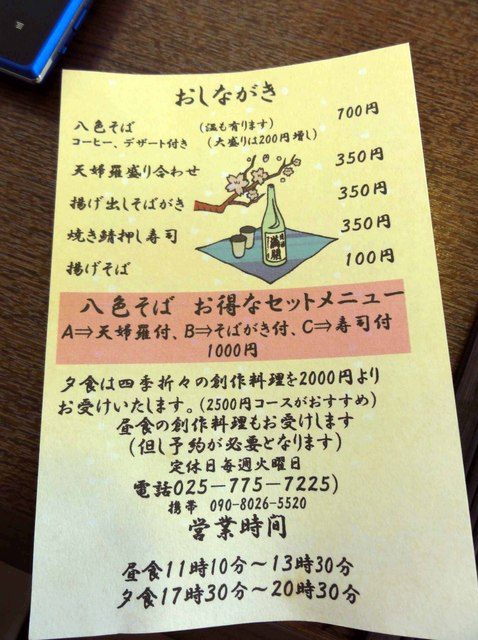 おしながき
八色そば （温も有ります） 700円
コーヒー、デザート付き （大盛りは200円増し）
天婦羅盛り合わせ 350円
揚げ出しそばがき 350円
焼き鯖押し寿司 350円
揚げそば 100円
八色そば お得なセットメニュー
A⇒天婦羅付、B⇒そばがき付、C⇒寿司付
1000円
夕食は四季折々の創作料理を2000円より
お受けいたします。（2500円コースがおすすめ）
昼食の創作料理もお受けします
（但し予約が必要となります）
定休日毎週火曜日
電話025－775－7225）
携帯 090-8026-5520
営業時間
昼食11時10分～13時30分
夕食17時30分～20時30分